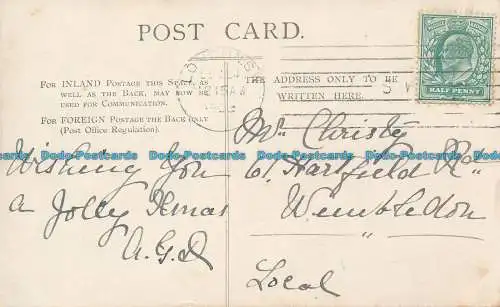 POST CARD.
FOR INLAND POSTAGE THIS SPACE, AS
WELL AS THE BACK, MAY NOW BE
USED FOR COMMUNICATION.
FOR FOREIGN POSTAGE THE BACK ONLY
(Post Office Regulation).
THE ADDRESS ONLY TO BE
WRITTEN HERE.
HALF PENNY
Wishing You
a Jolly Xmas
A.G.D
Mr Christy
61 Hartfield Rd
Wimbledon
Local
Dodo Postcards